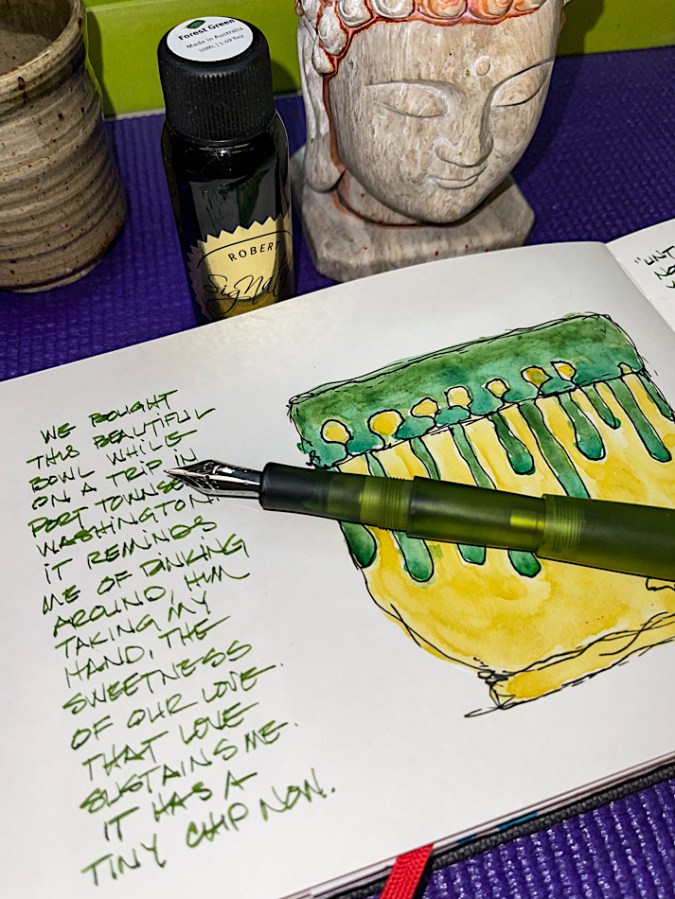 Forest Green
Made in Australia
50ML | 1.69 floz
ROBERT
Signat
WE BOUGHT
THIS BEAUTIFUL
BOWL WHILE
ON A TRIP IN
PORT TOWNSEND
WASHINGTON.
IT REMINDS
ME OF DINKING
AROUND, HIM
TAKING MY
HAND, THE
SWEETNESS
OF OUR LOVE.
THAT LOVE
SUSTAINS ME.
IT HAS A
TINY CHIP NOW.